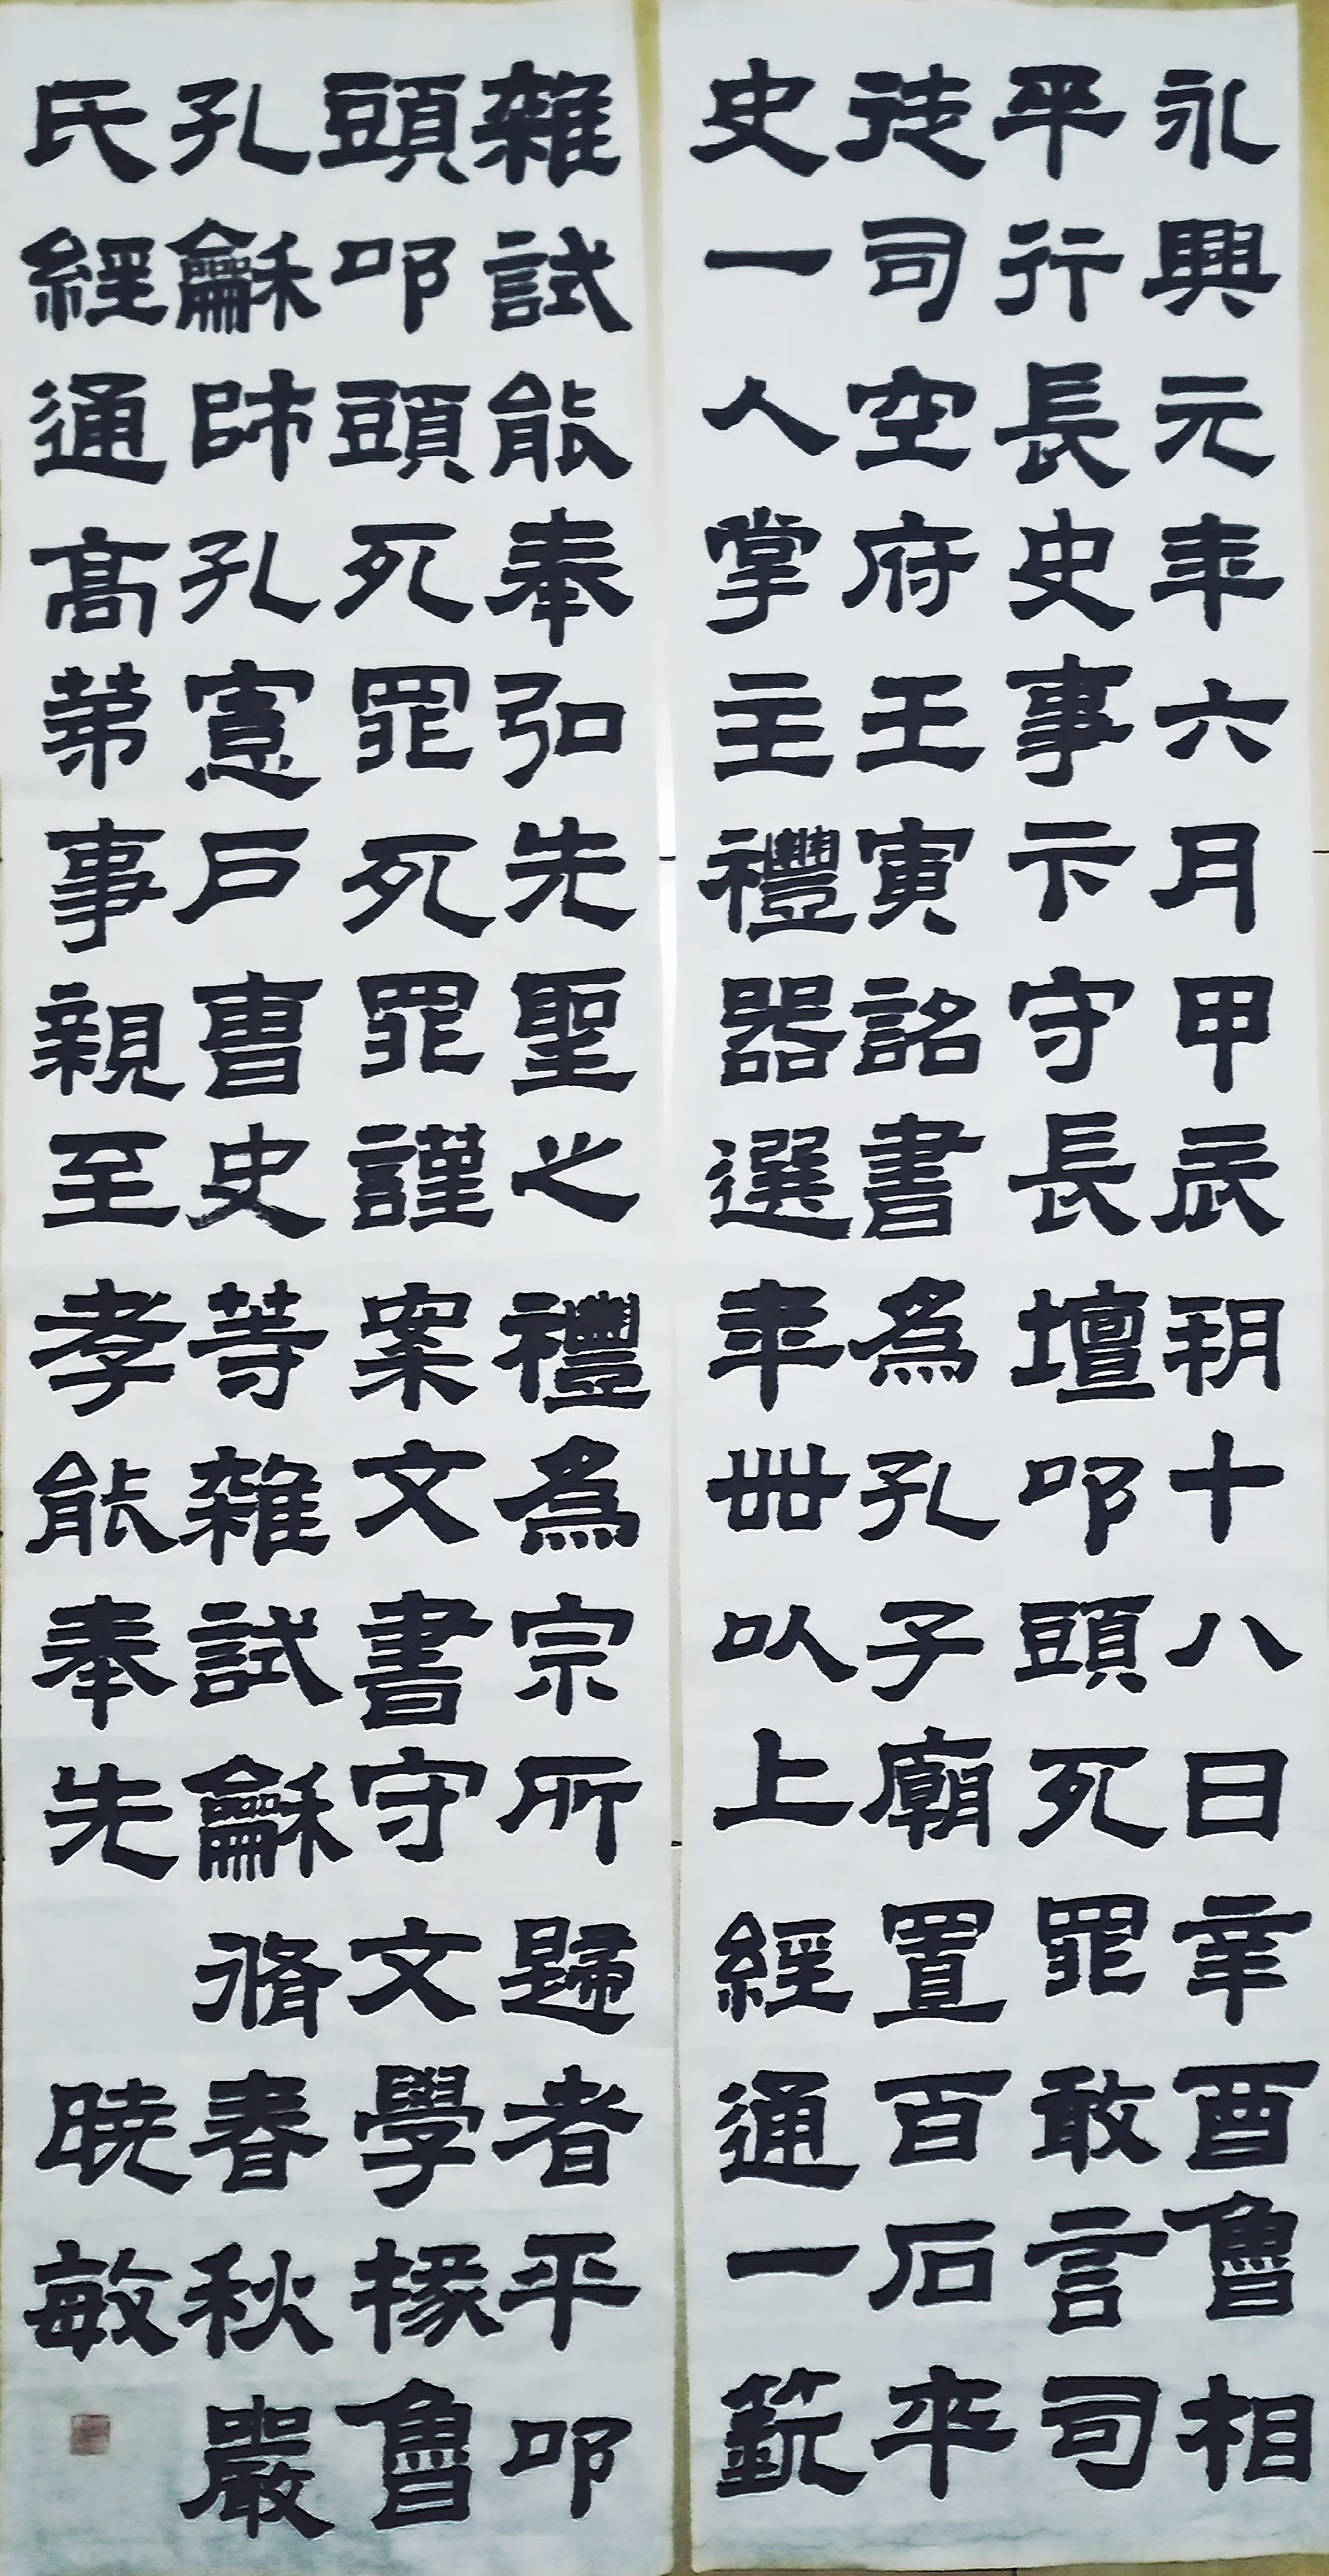 永興元年六月甲辰朔十八日辛酉魯相
平行長史事卞守長壇叩頭死罪敢言司
徒司空府壬寅詔書為孔子廟置百石卒
史一人掌主禮器選年卌以上經通一蓺
雜試能奉弘先聖之禮為宗所歸者平叩
頭叩頭死罪死罪謹案文書守文學掾魯
孔龢師孔憲戶曹史等雜試龢脩春秋嚴
氏經通高第事親至孝能奉先
曉敏